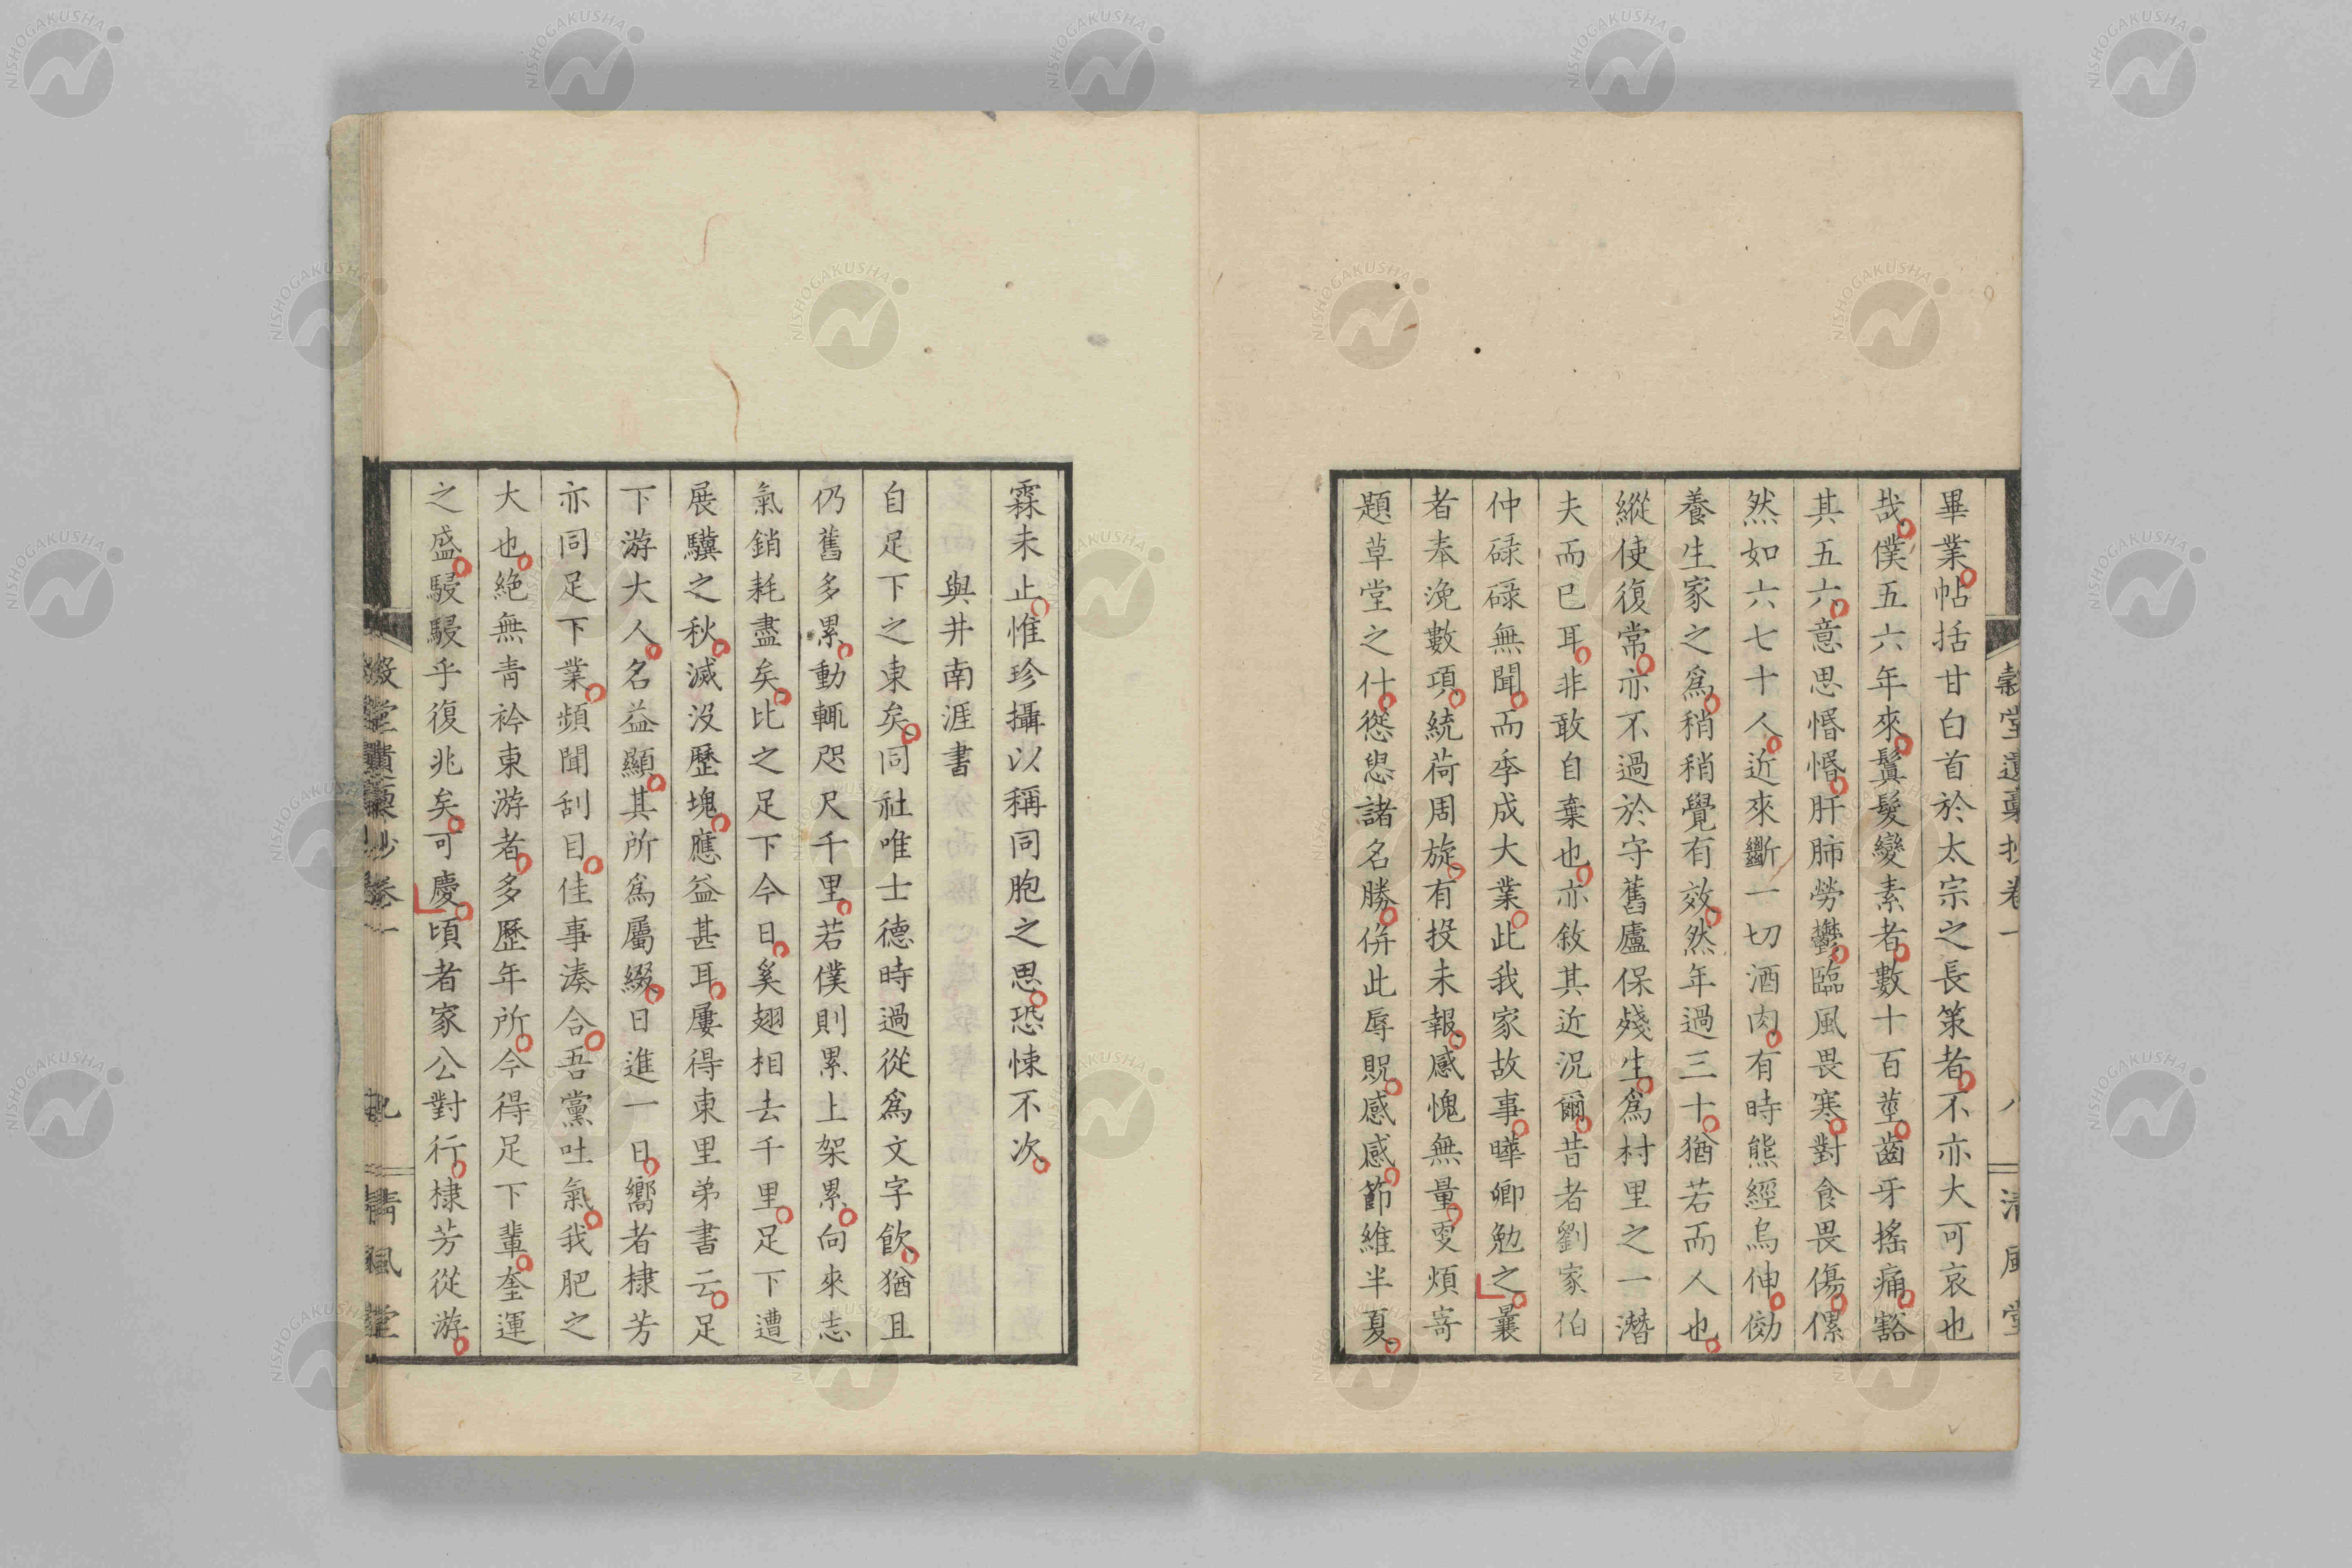 畢業帖括甘白首於太宗之長策者不亦大可哀也
哉僕五六年來鬒髮變素者數十百莖齒牙搖痛豁
其五六意思惛惛肝肺勞鬱臨風畏寒對食畏傷儽
然如六七十人近來斷一切酒肉有時熊經鳥伸傚
養生家之爲稍稍覺有效然年過三十猶若而人也
縱使復常亦不過於守舊廬保殘生爲村里之一潛
夫而已耳非敢自棄也亦敘其近況爾昔者劉家伯
仲碌碌無聞而季成大業此我家故事曄卿勉之曩
者奉浼數項統荷周旋有投未報感愧無量更煩寄
題草堂之什慫慂諸名勝併此辱貺感感節維半夏
霖未止惟珍攝以稱同胞之思恐悚不次
與井南涯書
自足下之東矣同社唯士德時過從爲文字飲猶且
仍舊多累動輒咫尺千里若僕則累上架累向來志
氣銷耗盡矣比之足下今日奚翅相去千里足下遭
展驥之秋滅没歷塊應益甚耳屢得東里弟書云足
下游大人名益顯其所爲屬綴日進一日嚮者棣芳
亦同足下業頻聞刮目佳事湊合吾黨吐氣我肥之
大也絕無青衿東游者多歷年所今得足下輩奎運
之盛駸駸乎復兆矣可慶頃者家公對行棣芳從游
穀堂遺稾抄卷一
八
清風堂
穀堂遺稾抄卷一
九
清風堂